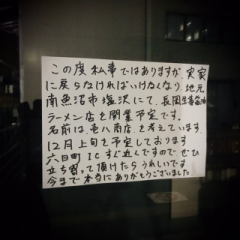 この度私事ではありますが、実家
に戻らなければいけなくなり、地元
南魚沼市塩沢にて、長岡生姜醤油
ラーメン店を開業予定です。
名前は、亀八商店、を考えています
12月上旬を予定しております。
六日町ICすぐ近くですので、ぜひ
立ち寄って頂けたらうれしいです
今まで本当にありがとうございました